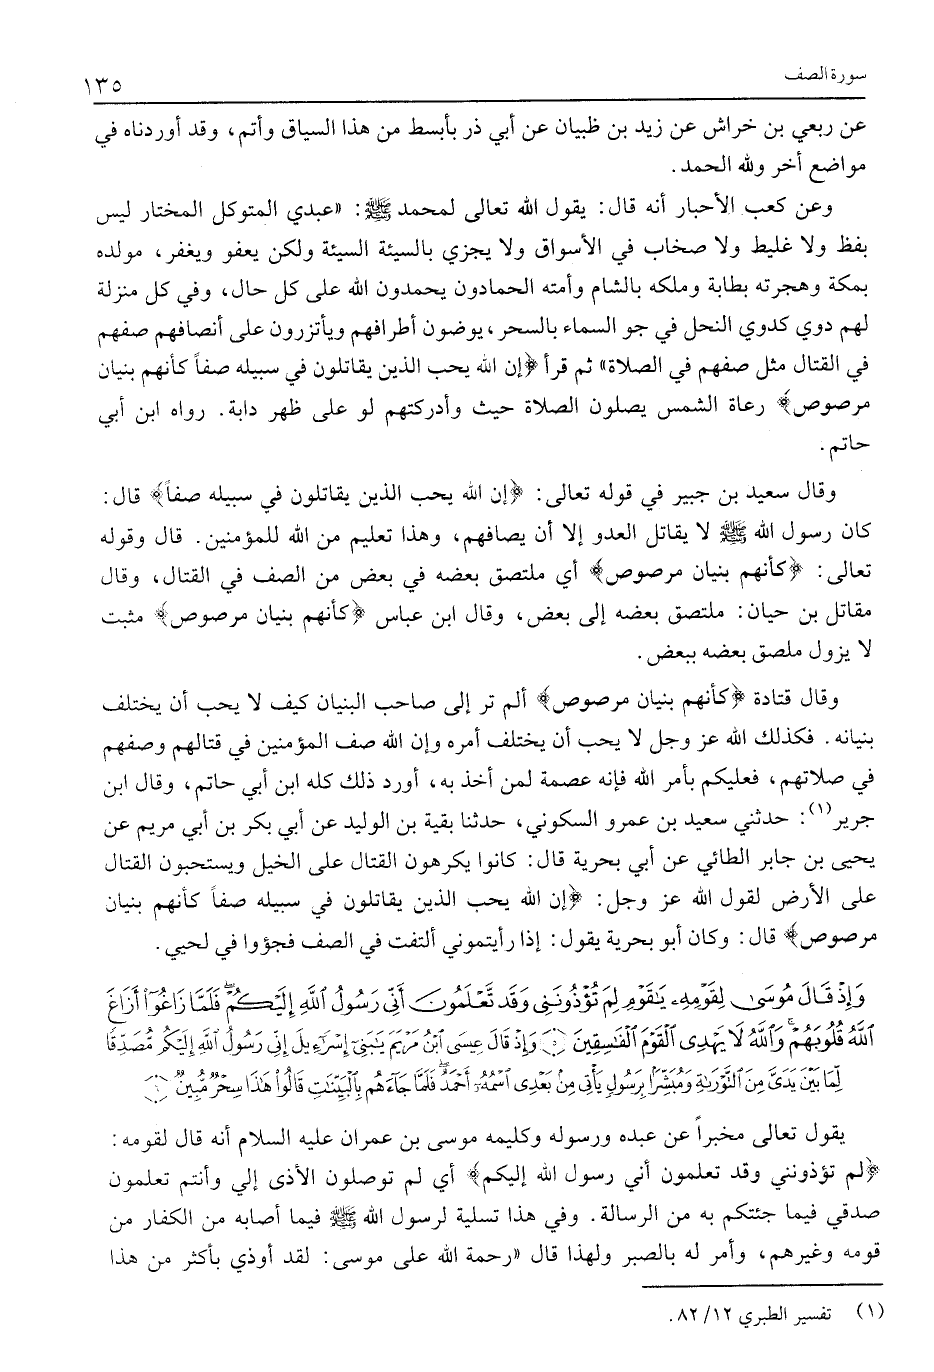 سورة الصف
١٣٥
عن ربعي بن خراش عن زيد بن ظبيان عن أبي ذر بأبسط من هذا السياق وأتم، وقد أوردناه في
مواضع أخر ولله الحمد.
وعن كعب الأحبار أنه قال: يقول الله تعالى لمحمد ﷺ: «عبدي المتوكل المختار ليس
بفظ ولا غليط ولا صخاب في الأسواق ولا يجزي بالسيئة السيئة ولكن يعفو ويغفر، مولده
بمكة وهجرته بطابة وملكه بالشام وأمته الحمادون يحمدون الله على كل حال، وفي كل منزلة
لهم دوي كدوي النحل في جو السماء بالسحر، يوضون أطرافهم ويأتزرون على أنصافهم صفهم
في القتال مثل صفهم في الصلاة» ثم قرأ ﴿إن الله يحب الذين يقاتلون في سبيله صفاً كأنهم بنيان
مرصوص﴾ رعاة الشمس يصلون الصلاة حيث وأدركتهم لو على ظهر دابة. رواه ابن أبي
حاتم.
وقال سعيد بن جبير في قوله تعالى: ﴿إن الله يحب الذين يقاتلون في سبيله صفاً﴾ قال:
كان رسول الله ﷺ لا يقاتل العدو إلا أن يصافهم، وهذا تعليم من الله للمؤمنين. قال وقوله
تعالى: ﴿كأنهم بنيان مرصوص﴾ أي ملتصق بعضه في بعض من الصف في القتال، وقال
مقاتل بن حيان: ملتصق بعضه إلى بعض، وقال ابن عباس ﴿كأنهم بنيان مرصوص﴾ مثبت
لا يزول ملصق بعضه ببعض.
وقال قتادة ﴿كأنهم بنيان مرصوص﴾ ألم تر إلى صاحب البنيان كيف لا يحب أن يختلف
بنيانه. فكذلك الله عز وجل لا يحب أن يختلف أمره وإن الله صف المؤمنين في قتالهم وصفهم
في صلاتهم، فعليكم بأمر الله فإنه عصمة لمن أخذ به، أورد ذلك كله ابن أبي حاتم، وقال ابن
جرير(١): حدثني سعيد بن عمرو السكوني، حدثنا بقية بن الوليد عن أبي بكر بن أبي مريم عن
يحيى بن جابر الطائي عن أبي بحرية قال: كانوا يكرهون القتال على الخيل ويستحبون القتال
على الأرض لقول الله عز وجل: ﴿إن الله يحب الذين يقاتلون في سبيله صفاً كأنهم بنيان
مرصوص﴾ قال: وكان أبو بحرية يقول: إذا رأيتموني ألتفت في الصف فجؤوا في لحيي.
وَإِذْ قَالَ مُوسَىٰ لِقَوْمِهِۦ يَٰقَوْمِ لِمَ تُؤْذُونَنِى وَقَد تَّعْلَمُونَ أَنِّى رَسُولُ ٱللَّهِ إِلَيْكُمْ ۖ فَلَمَّا زَاغُوٓا۟ أَزَاغَ
ٱللَّهُ قُلُوبَهُمْ ۚ وَٱللَّهُ لَا يَهْدِى ٱلْقَوْمَ ٱلْفَٰسِقِينَ ﴿٥﴾ وَإِذْ قَالَ عِيسَى ٱبْنُ مَرْيَمَ يَٰبَنِىٓ إِسْرَٰٓءِيلَ إِنِّى رَسُولُ ٱللَّهِ إِلَيْكُم مُّصَدِّقًا
لِّمَا بَيْنَ يَدَىَّ مِنَ ٱلتَّوْرَىٰةِ وَمُبَشِّرًۢا بِرَسُولٍ يَأْتِى مِنۢ بَعْدِى ٱسْمُهُۥٓ أَحْمَدُ ۖ فَلَمَّا جَآءَهُم بِٱلْبَيِّنَٰتِ قَالُوا۟ هَٰذَا سِحْرٌ مُّبِينٌ ﴿٦﴾
يقول تعالى مخبراً عن عبده ورسوله وكليمه موسى بن عمران عليه السلام أنه قال لقومه:
﴿لم تؤذونني وقد تعلمون أني رسول الله إليكم﴾ أي لم توصلون الأذى إلي وأنتم تعلمون
صدقي فيما جئتكم به من الرسالة. وفي هذا تسلية لرسول الله ﷺ فيما أصابه من الكفار من
قومه وغيرهم، وأمر له بالصبر ولهذا قال «رحمة الله على موسى: لقد أوذي بأكثر من هذا
(١) تفسير الطبري ١٢/ ٨٢.